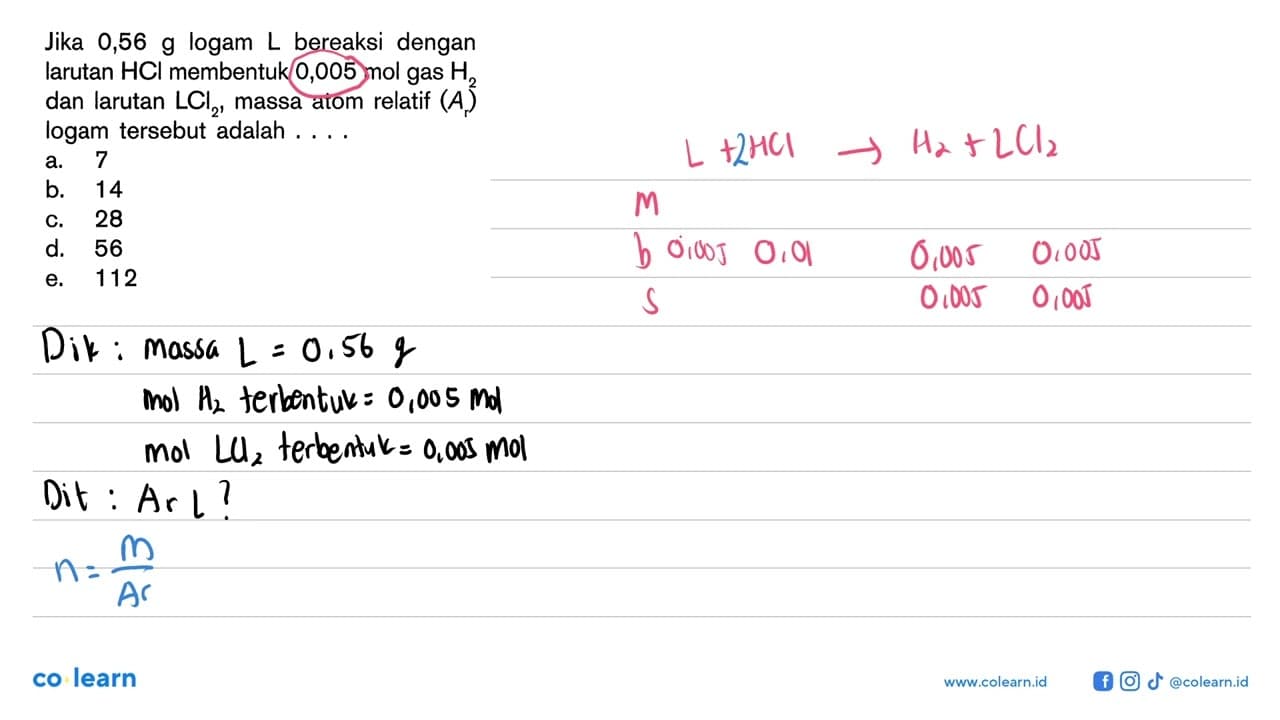 Jika 0,56 g logam L bereaksi dengan
larutan HCl membentuk 0,005 mol gas H₂
dan larutan LCl₂, massa atom relatif (Aᵣ)
logam tersebut adalah . . . .
a. 7
b. 14
c. 28
d. 56
e. 112
L + 2HCl → H₂ + LCl₂
M
b 0,005 0,01 0,005 0,005
S 0,005 0,005
Dik : massa L = 0,56 g
mol H₂ terbentuk = 0,005 mol
mol LCl₂ terbentuk = 0,005 mol
Dit : Ar L ?
n = m/Ar
co learn
www.colearn.id @colearn.id